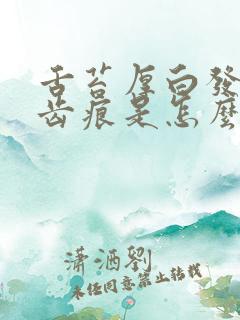 舌苔厚白发
齿痕是怎麼
潇洒劉
未经同意禁止转载